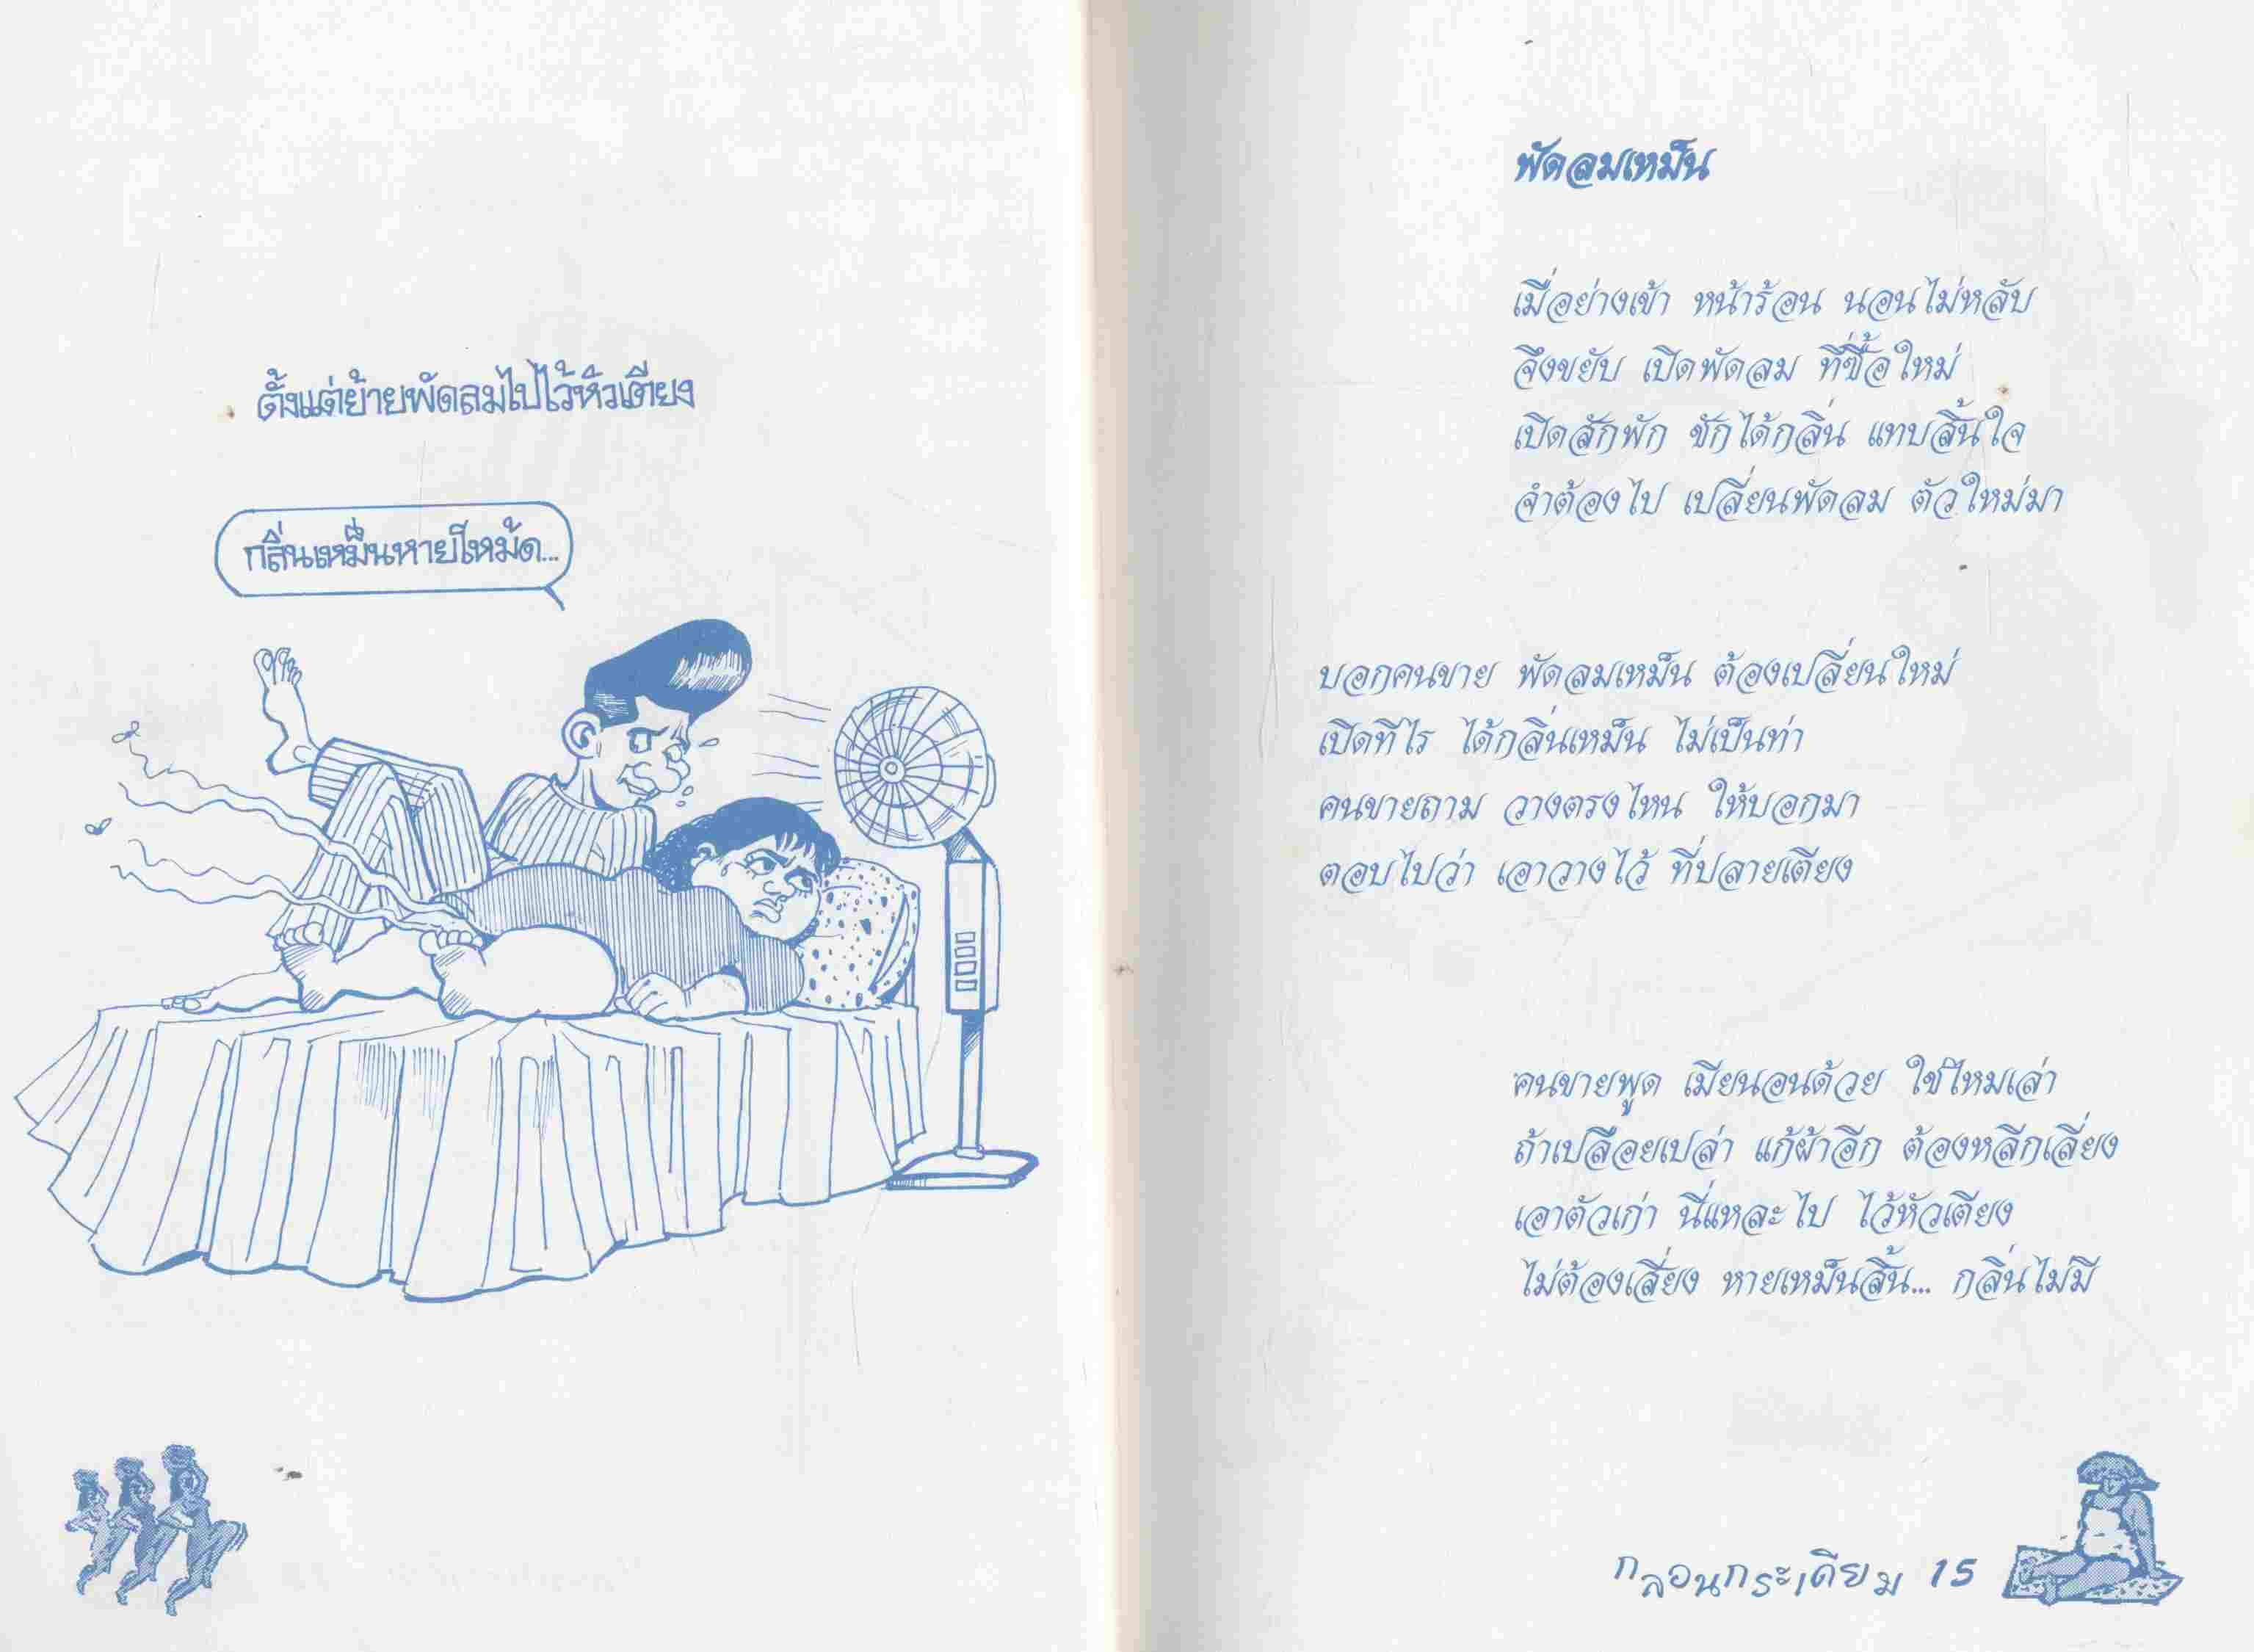 ตั้งแต่ย้ายพัดลมไปไว้หัวเตียง
กลิ่นเหม็นหายโหม้ด...
พัดลมเหม็น
เมื่อย่างเข้า หน้าร้อน นอนไม่หลับ
จึงขยับ เปิดพัดลม ที่ซื้อใหม่
เปิดสักพัก ชักได้กลิ่น แทบสิ้นใจ
จำต้องไป เปลี่ยนพัดลม ตัวใหม่มา
บอกคนขาย พัดลมเหม็น ต้องเปลี่ยนใหม่
เปิดทีไร ได้กลิ่นเหม็น ไม่เป็นท่า
คนขายถาม วางตรงไหน ให้บอกมา
ตอบไปว่า เอาวางไว้ ที่ปลายเตียง
คนขายพูด เมียนอนด้วย ใช่ไหมเล่า
ถ้าเปลือยเปล่า แก้ผ้าอีก ต้องหลีกเลี่ยง
เอาตัวเก่า นี่แหละไป ไว้หัวเตียง
ไม่ต้องเสี่ยง หายเหม็นสิ้น... กลิ่นไม่มี
กลอนกระเดียม 15